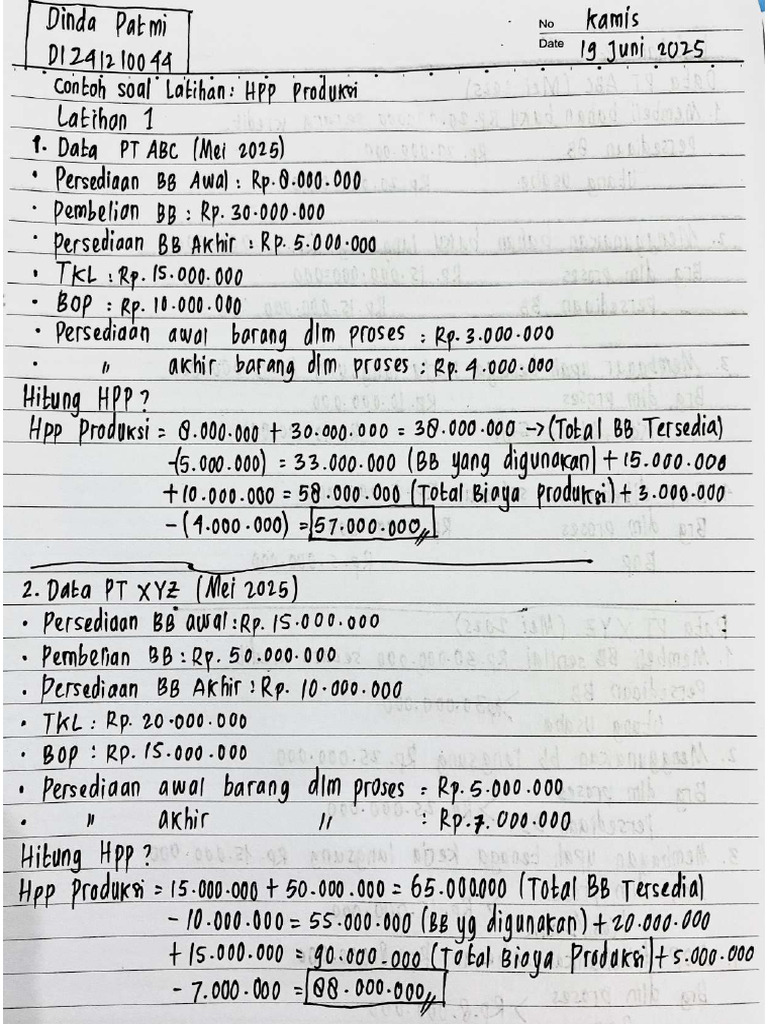 Dinda Patmi
D1241210044
No Kamis
Date 19 Juni 2025
Contoh soal Latihan: HPP Produksi
Latihan 1
1. Data PT ABC (Mei 2025)
• Persediaan BB Awal: Rp. 8.000.000
• Pembelian BB : Rp. 30.000.000
• Persediaan BB Akhir : Rp. 5.000.000
• TKL : Rp. 15.000.000
• BOP : Rp. 10.000.000
• Persediaan awal barang dlm proses : Rp. 3.000.000
• " akhir barang dlm proses : Rp. 4.000.000
Hitung HPP?
HPP Produksi = 8.000.000 + 30.000.000 = 38.000.000 → (Total BB Tersedia)
-(5.000.000) = 33.000.000 (BB yang digunakan) + 15.000.000
+10.000.000 = 58.000.000 (Total Biaya produksi) + 3.000.000
- (4.000.000) = 57.000.000,,
2. Data PT XYZ (Mei 2025)
• Persediaan BB awal : Rp. 15.000.000
• Pembelian BB : Rp. 50.000.000
• Persediaan BB Akhir : Rp. 10.000.000
• TKL : Rp. 20.000.000
• BOP : Rp. 15.000.000
• Persediaan awal barang dlm proses = Rp. 5.000.000
• " akhir " : Rp. 7.000.000
Hitung HPP?
HPP Produksi = 15.000.000 + 50.000.000 = 65.000.000 (Total BB Tersedia)
- 10.000.000 = 55.000.000 (BB yg digunakan) + 20.000.000
+ 15.000.000 = 90.000.000 (Total Biaya Produksi) + 5.000.000
- 7.000.000 = 88.000.000,,